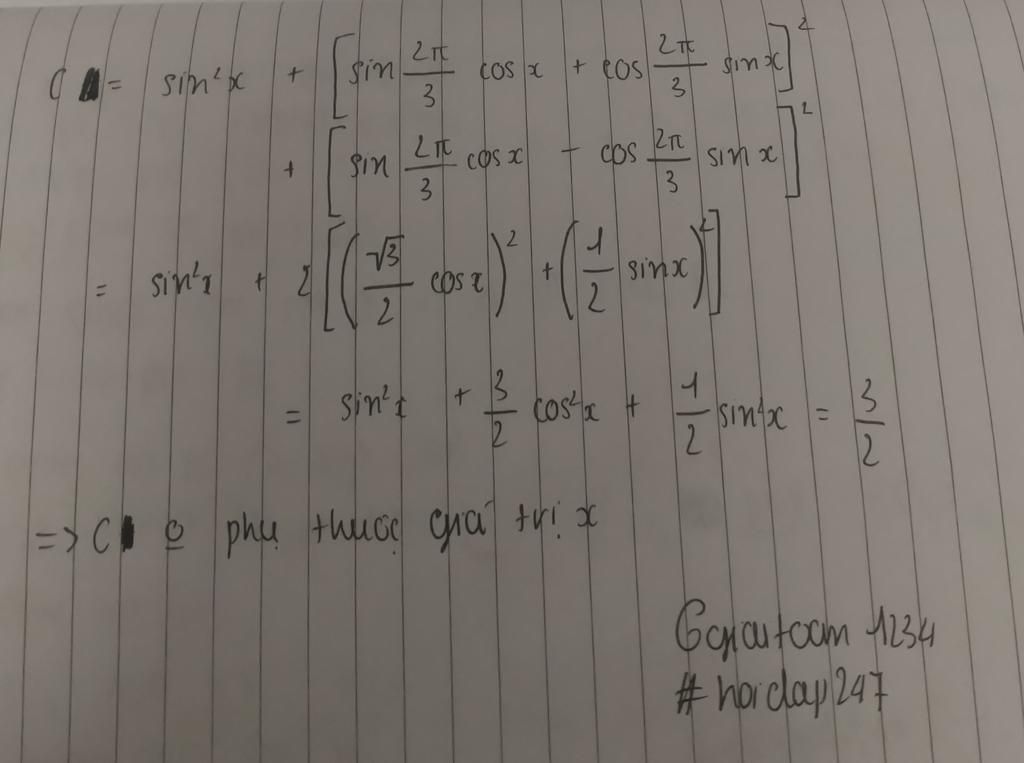 C = sin²x + [sin 2π/3 cos x + cos 2π/3 sin x]²
+ [sin 2π/3 cos x - cos 2π/3 sin x]²
= sin²x + 2[(√3/2 cos x)² + (1/2 sin x)²]
= sin²x + 3/2 cos²x + 1/2 sin²x = 3/2
=> C o phụ thuộc giá trị x
Ggiautoan 1234
#hoidap247